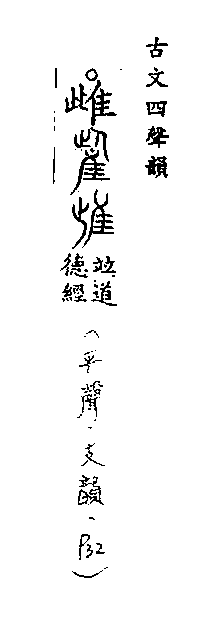 古文四聲韻
雌
竝道
德經
(平聲、支韻、P32)